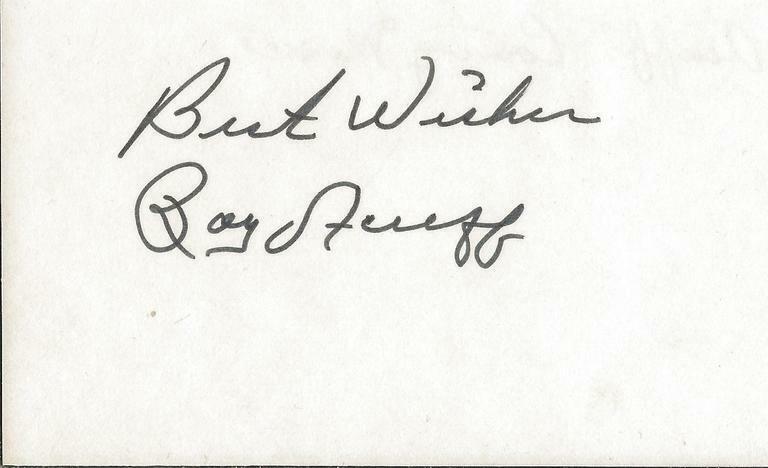 Best Wishes
Roy Acuff